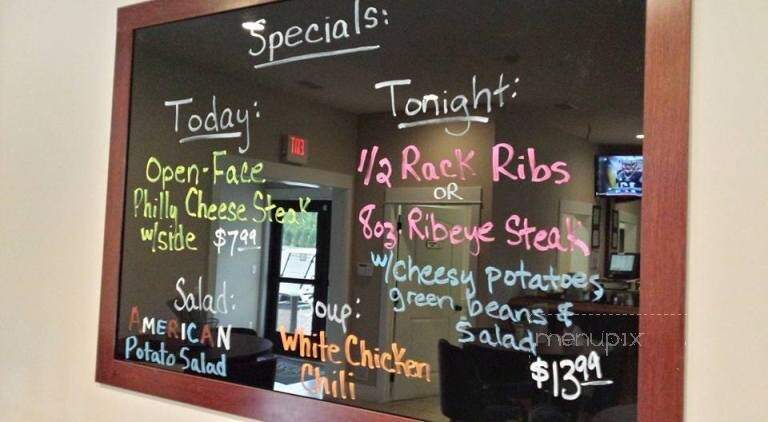 Specials:
Today:
Open-Face
Philly Cheese Steak
w/side $7.99
Salad:
AMERICAN
Potato Salad
Soup:
White Chicken
Chili
Tonight:
1/2 Rack Ribs
OR
8oz Ribeye Steak
w/cheesy potatoes,
green beans &
Salad
$13.99
menupix